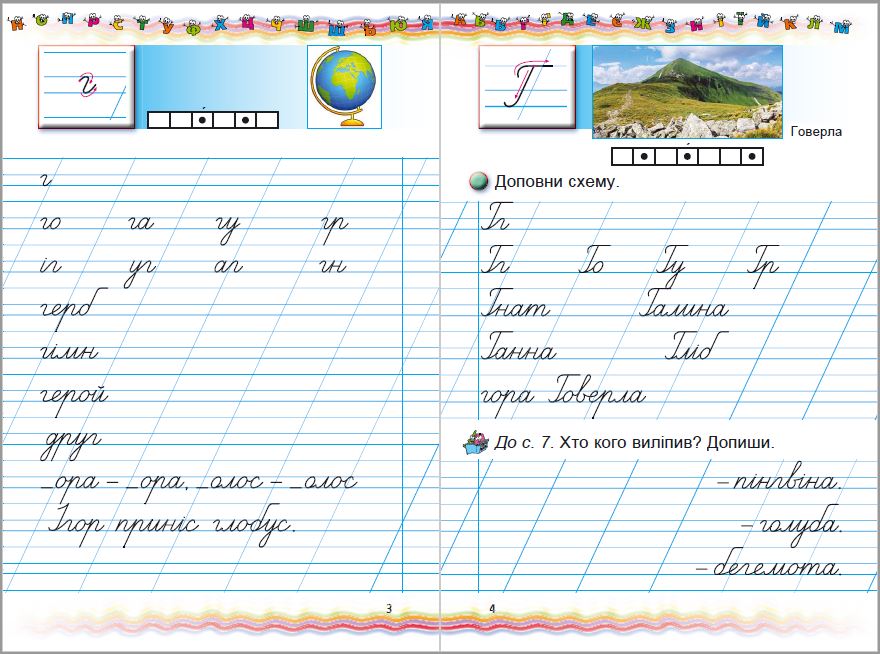 Н О П Р С Т У Ф Х Ц Ч Ш Щ Ь Ю Я А Б В Г Ґ Д Е Є Ж З И І Ї Й К Л М
г
г
го га гу гр
іг уг аг гн
герб
гімн
герой
друг
_ора – _ора, _олос – _олос
Ігор приніс глобус.
3
Г
Говерла
Доповни схему.
Гг
Гг Го Гу Гр
Гнат Галина
Ганна Гліб
гора Говерла
До с. 7. Хто кого виліпив? Допиши.
– пінгвіна.
– голуба.
– бегемота.
4